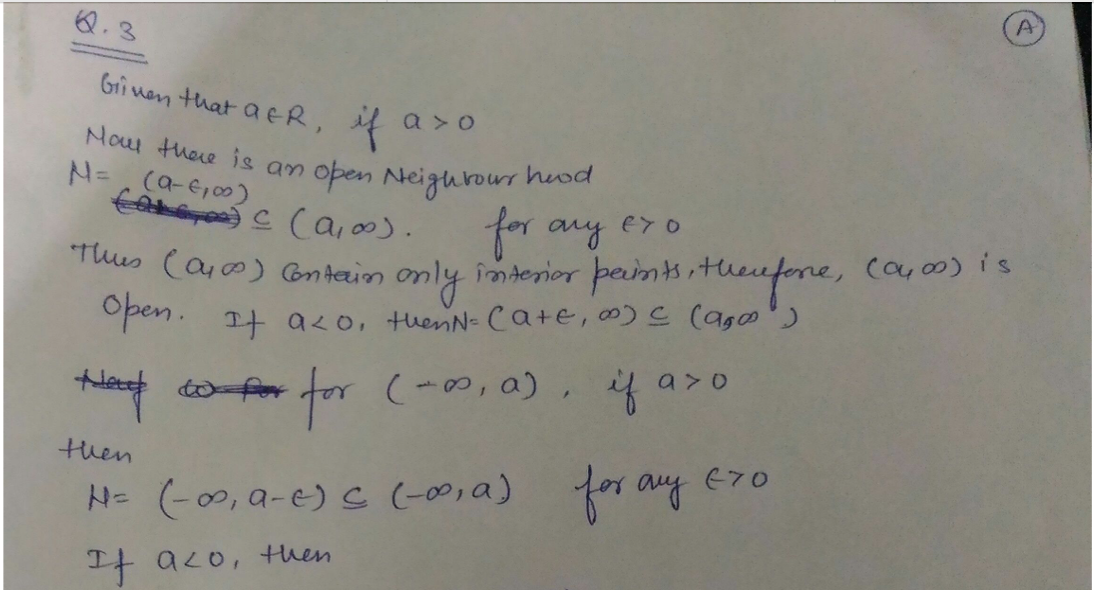 Q.3
A
Given that a ∈ R, if a > 0
Now there is an open Neighbourhood
N = (a-ϵ, ∞)
⊆ (a, ∞). for any ϵ > 0
Thus (a, ∞) Contain only interior points, therefore, (a, ∞) is
Open. If a < 0, then N = (a+ϵ, ∞) ⊆ (a, ∞)
for (-∞, a), if a > 0
then
N = (-∞, a-ϵ) ⊆ (-∞, a) for any ϵ > 0
If a < 0, then